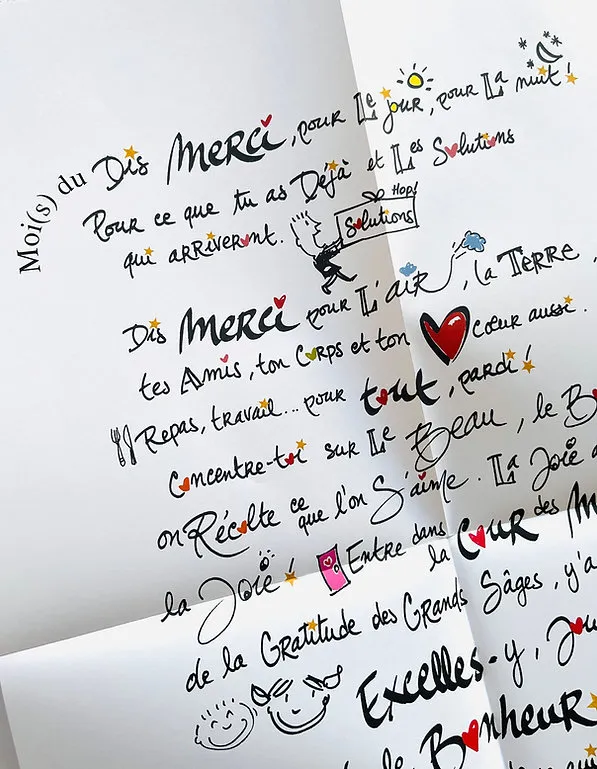 Moi(s) du
Dis Merci, pour Le jour, pour La nuit !
Pour ce que tu as Déjà et Les Solutions
qui arriveront.
Hop!
Solutions
Dis Merci pour L'air, la Terre,
tes Amis, ton Corps et ton coeur aussi.
Repas, travail... pour tout, pardi !
Concentre-toi sur Le Beau, le B
on Récolte ce que l'on S'aime. La Joie a
la Joie ! Entre dans la Cour des M
de la Gratitude des Grands Sâges, y'a
Excelles-y, Jou
le Bonheur